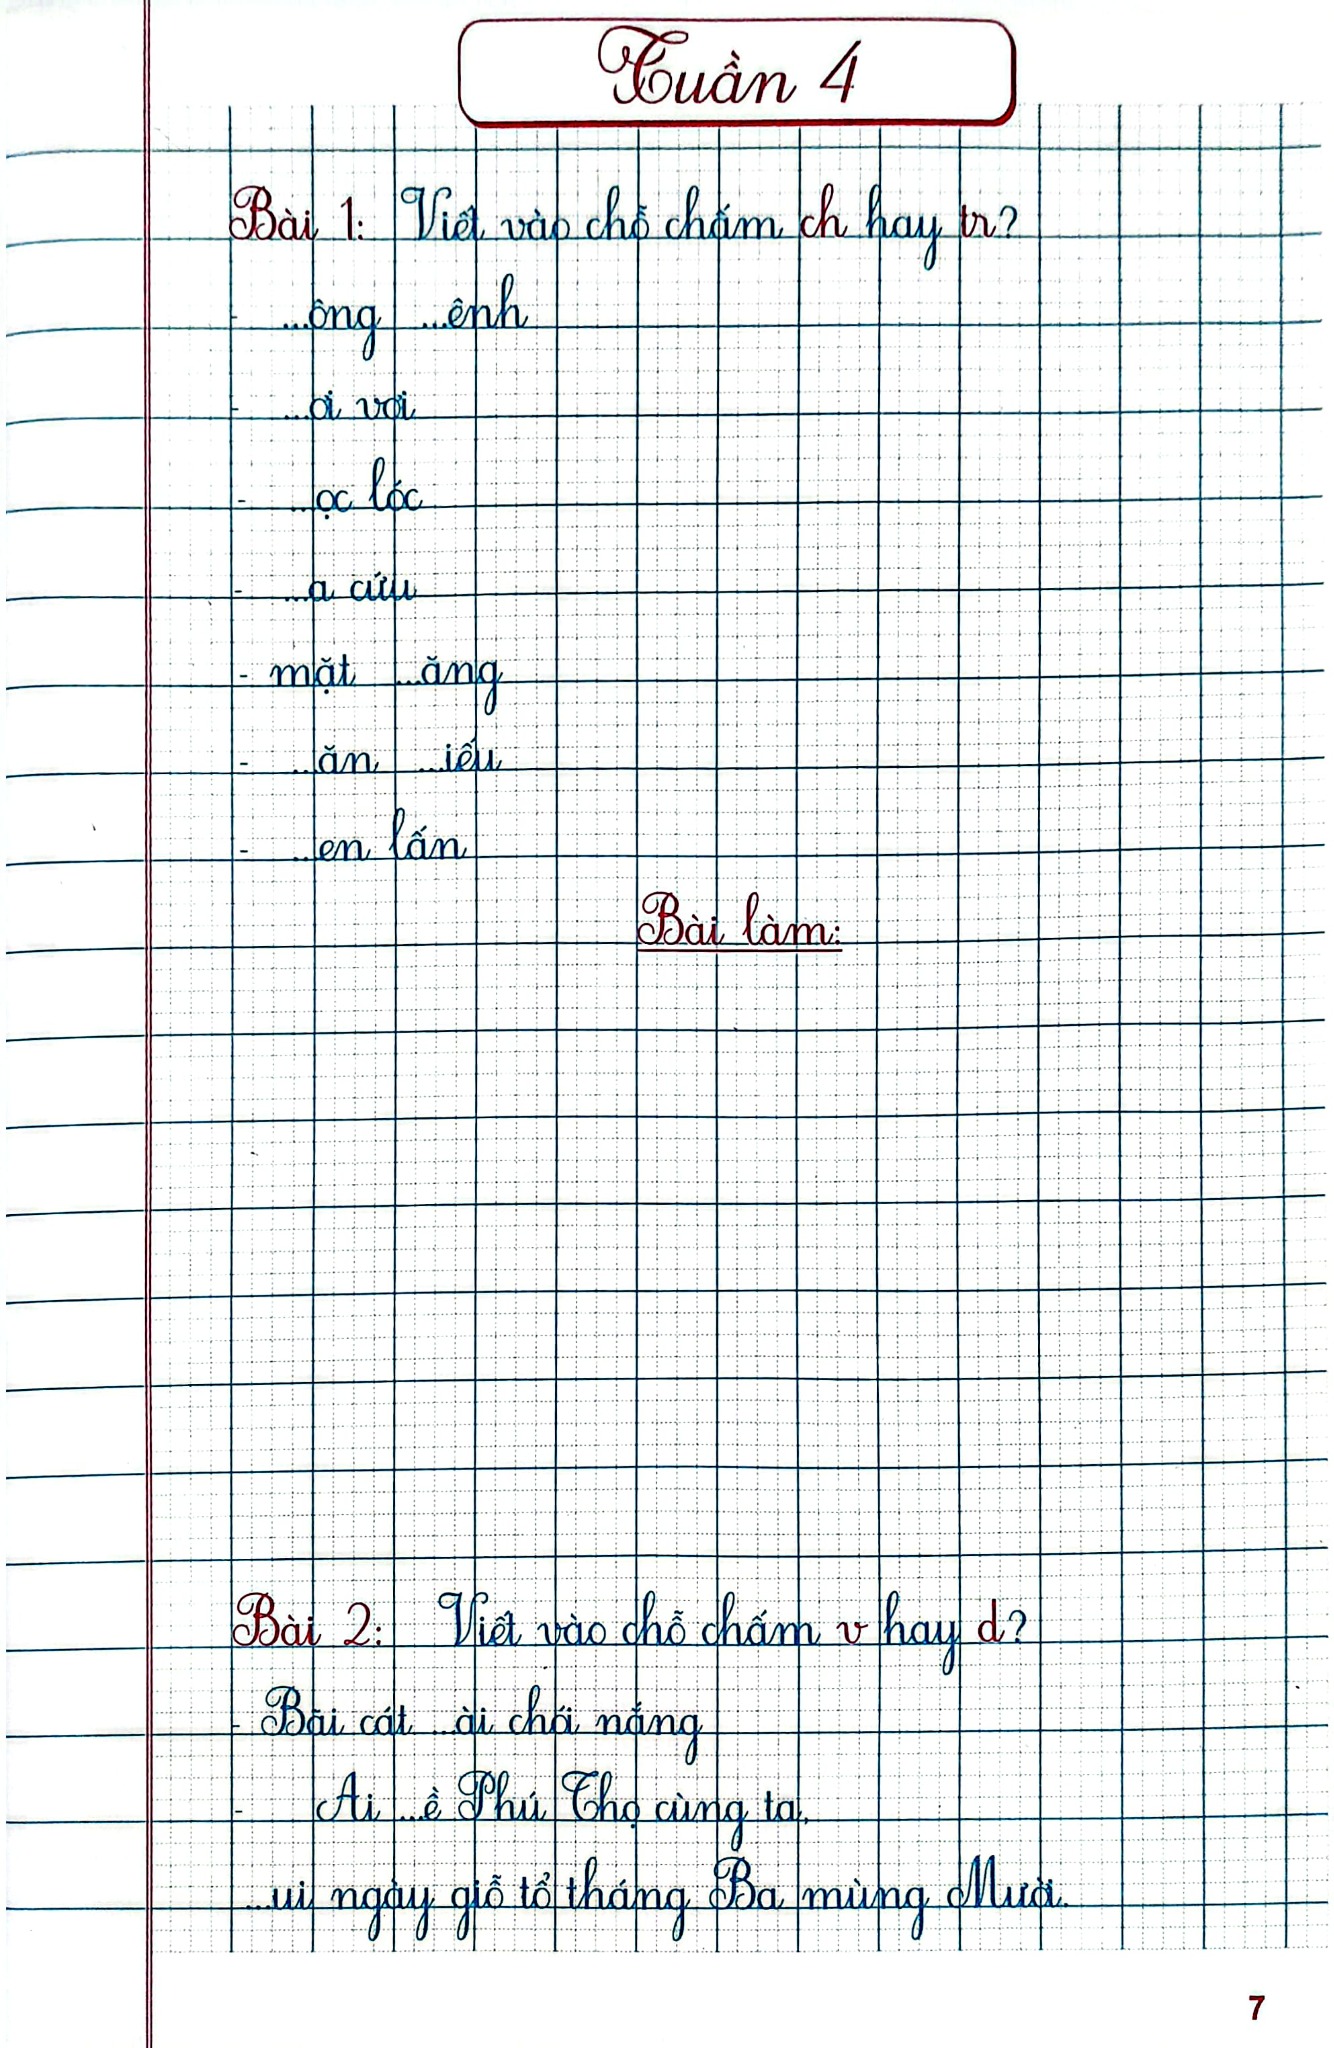 Tuần 4
Bài 1: Viết vào chỗ chấm ch hay tr?
- ...ông ...ênh
- ...ơi vơi
- ...ọc lóc
- ...a cứu
- mặt ...ăng
- ...ăn ...iếu
- ...en lấn
Bài làm:
Bài 2: Viết vào chỗ chấm v hay d?
- Bãi cát ...ài chói nắng
- Ai ...ề Phú Thọ cùng ta,
...ui ngày giỗ tổ tháng Ba mùng Mười.
7